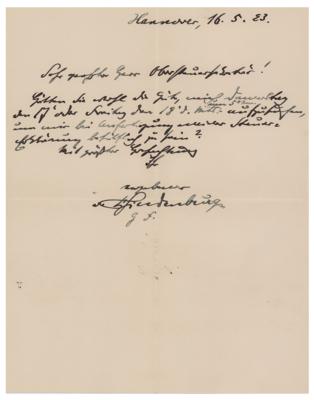 Hannover, 16. 5. 23.
Sehr geehrter Herr Obersteuersekretär!
Hätten Sie wohl die Güte, mich Donnerstag
den 17 oder Freitag den 18 d. Mts. aufzusuchen,
um mir bei Anfertigung meiner Steuer-
erklärung behülflich zu sein?
Mit größter Hochachtung
Ihr
ergebener
v. Hindenburg
G F.